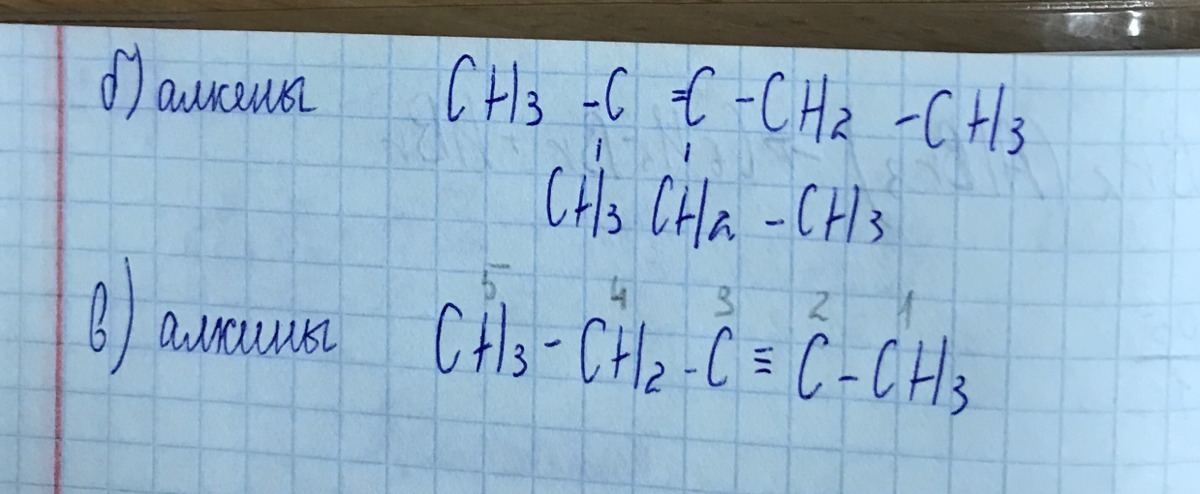 б) алкены CH3 -C =C -CH2 -CH3
CH3 CH2 -CH3
5 4 3 2 1
в) алкины CH3 - CH2 -C ≡ C -CH3